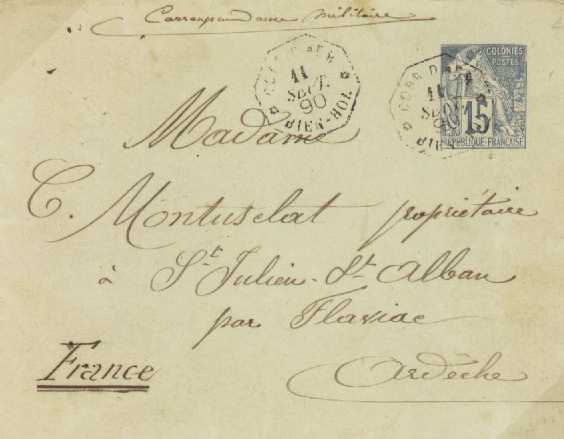 Correspondance militaire
CORR. D. ARM.
11
SEPT.
90
BIEN-HOA
CORR. D. ARM.
11
SEPT.
90
BIEN
COLONIES
POSTES
15
RÉPUBLIQUE FRANÇAISE
Madame
C. Montusclat propriétaire
à St Julien-St Alban
par Flaviac
France
Ardèche